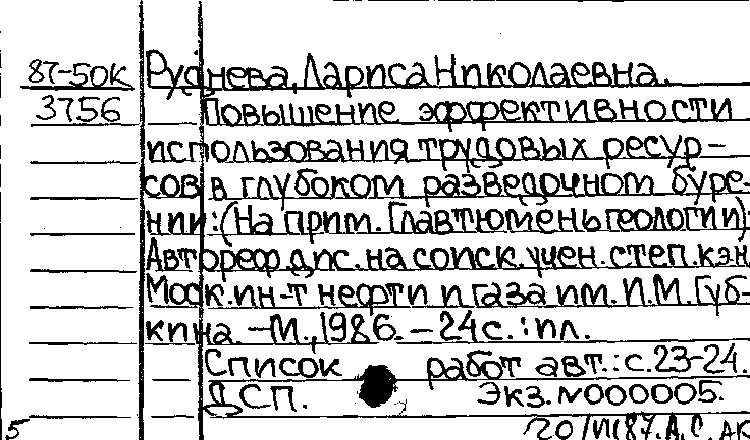 87-50К Руднева, Лариса Николаевна.
3756 Повышение эффективности
использования трудовых ресур-
сов в глубоком разведочном буре-
нии: (На прим. Главтюменьгеологии):
Автореф. дис. на соиск. учен. степ. к.э.н.
Моск. ин-т нефти и газа им. И.М. Губ-
кина. – М., 1986. – 24 с. : ил.
Список работ авт.: с. 23-24.
ДСП. Экз. N000005.
5 20/VI87. А.С. АК